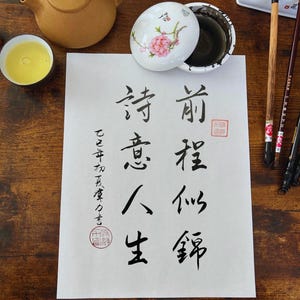 前程似錦
詩意人生
乙巳年初夏